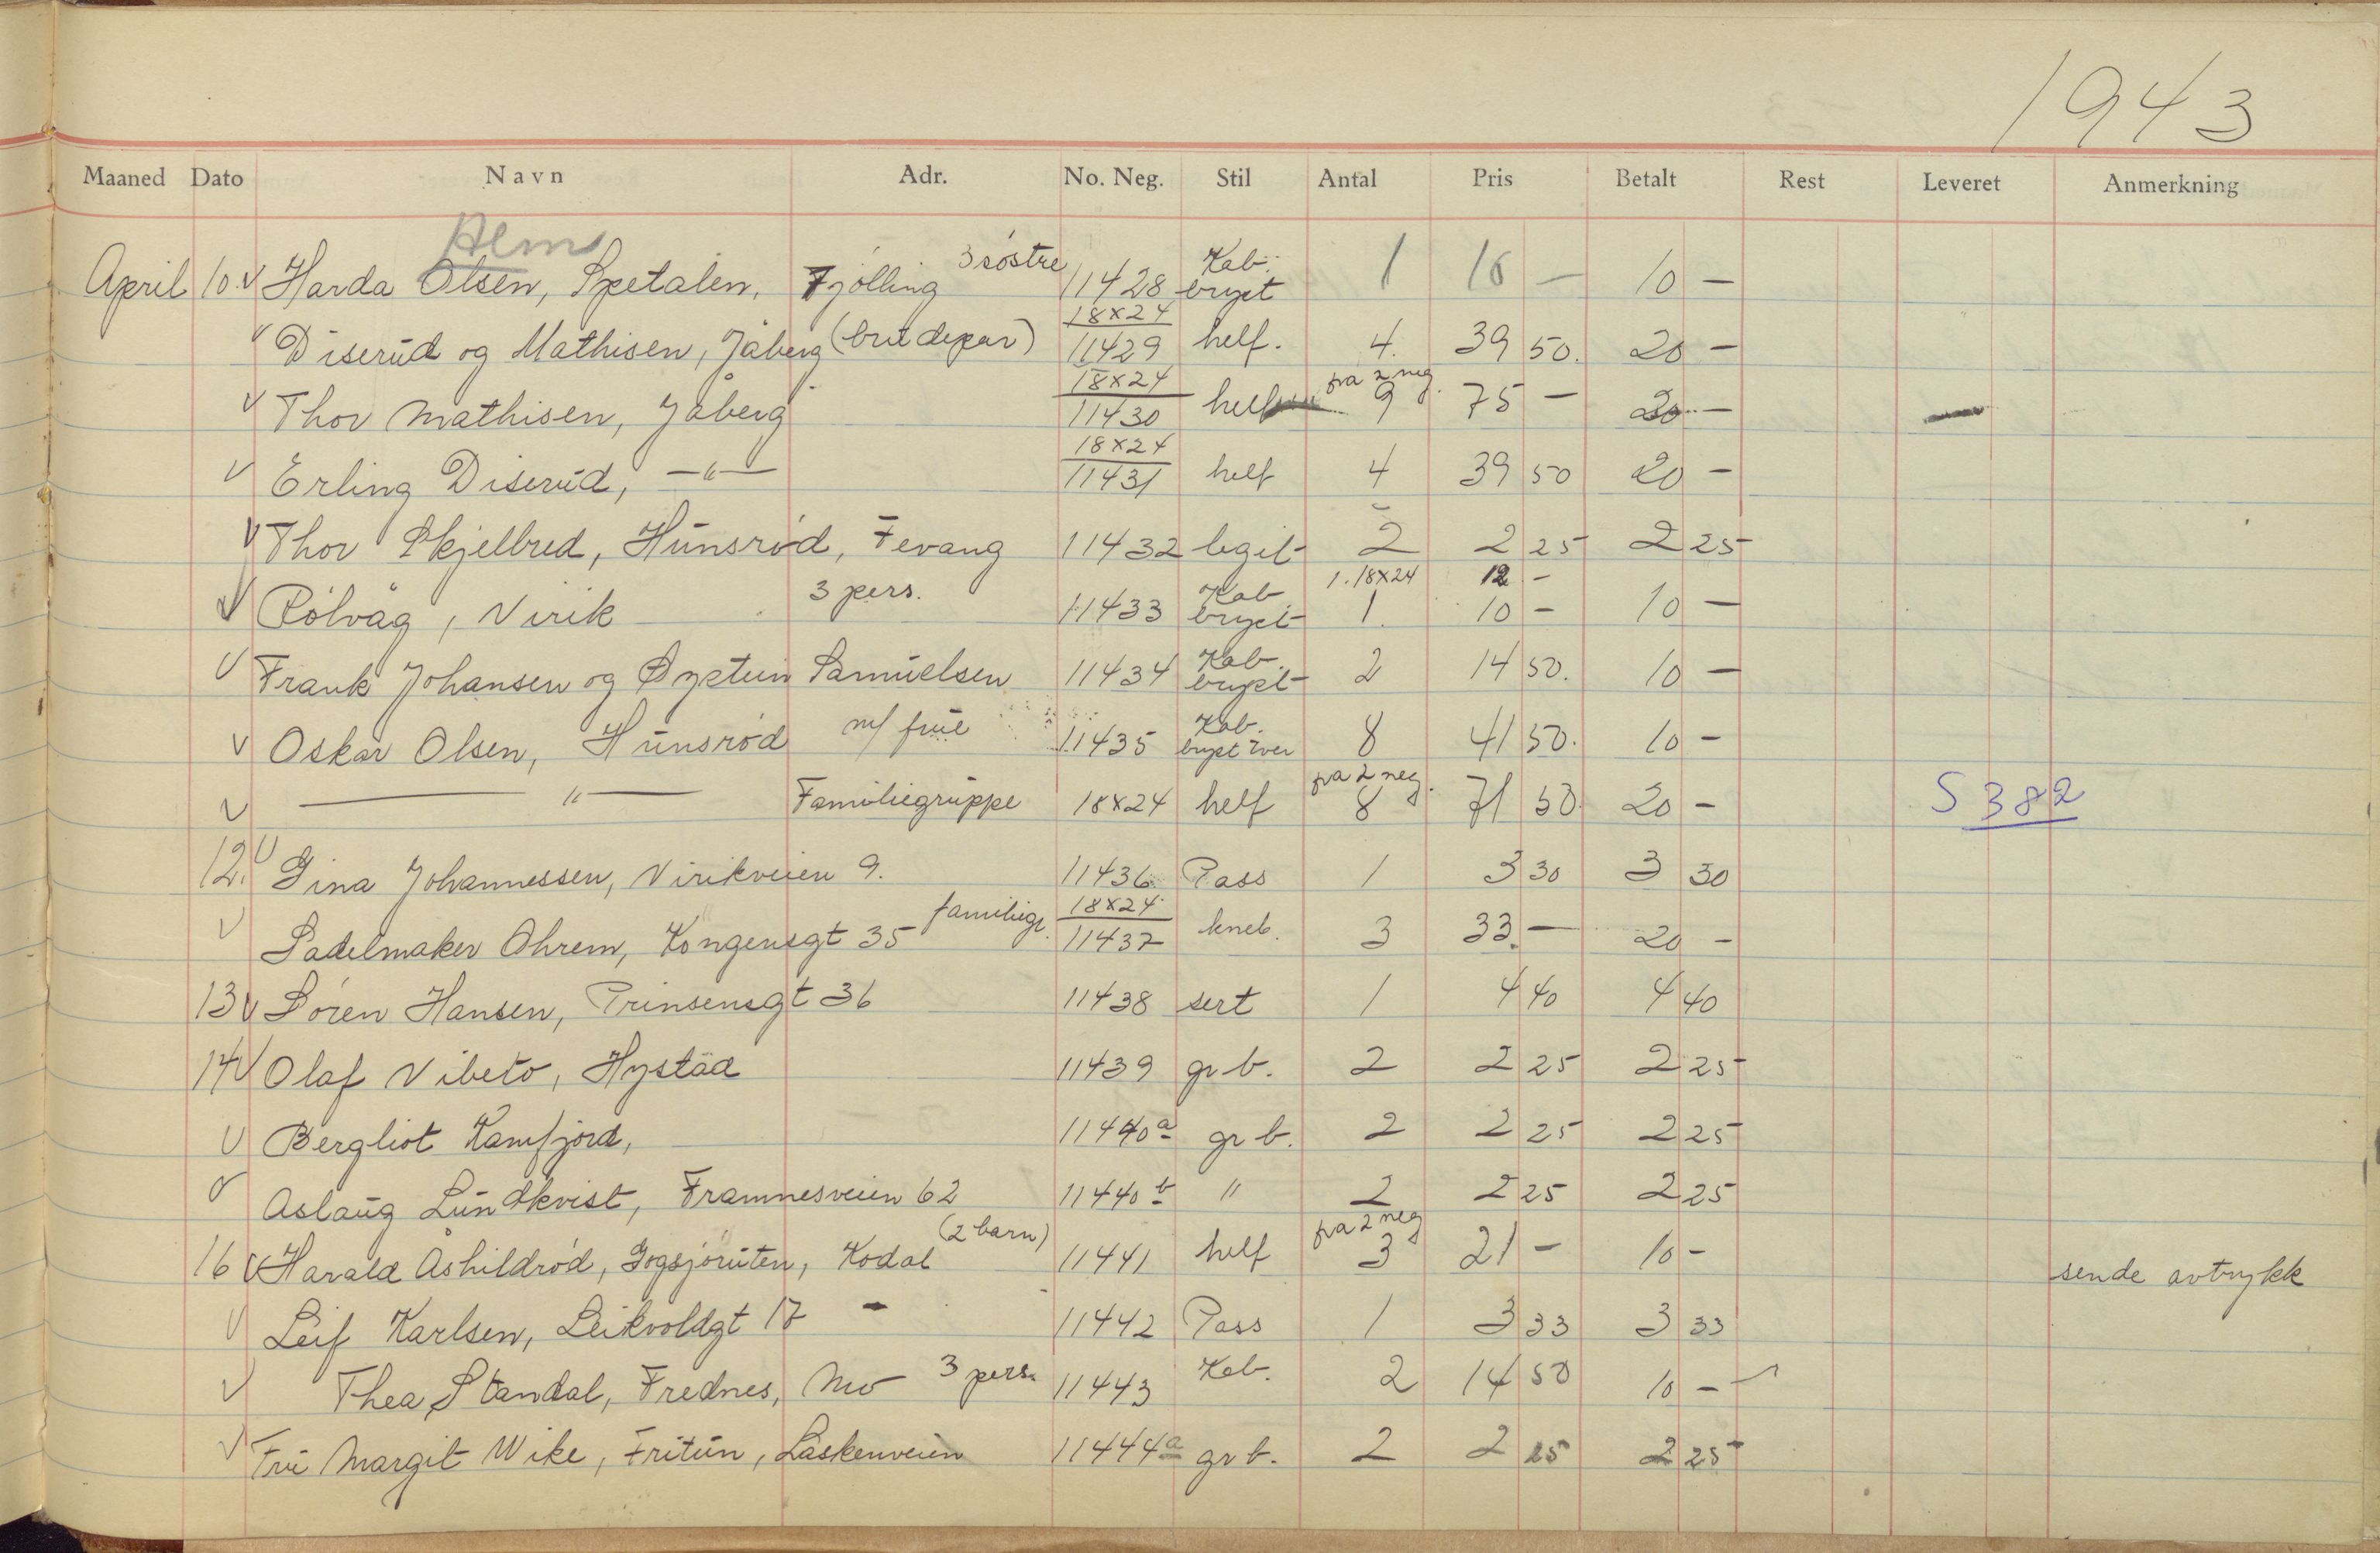 1943
Maaned Dato Navn Adr. No. Neg. Stil Antal Pris Betalt Rest Leveret Anmerkning
Hem
April 10. V Harda Olsen, Spetalen, Tjölling 3 söstre 11428 Kab. bryst 1 10 — 10 —
V Diserud og Mathisen, Jåberg (brudepar) 18x24 11429 helf. 4. 39 50. 20 —
V Thor Mathisen, Jåberg 18x24 11430 helf fra 2 neg. 9 75 — 20 —
V Erling Diserud, —"— 18x24 11431 helf 4 39 50 20 —
V Thor Skjelbred, Hunsröd, Fevang 11432 legit 2 2 25 2 25
V Rölvåg, Virik 3 pers. 11433 Kab bryst 1. 18x24 1. 12 — 10 — 10 —
V Frank Johansen og Øystein Samuelsen 11434 Kab. bryst 2 14 50. 10 —
V Oskar Olsen, Hunsröd m/ frue 11435 Kab. bryst tver 8 41 50. 10 —
V —"— Familiegruppe 18x24 helf fra 2 neg. 8 71 50. 20 — S 382
12. V Gina Johannessen, Virikveien 9. 11436 Pass 1 3 30 3 30
V Sadelmaker Ohrem, Kongensgt 35 familiegr. 18x24 11437 kneb. 3 33. — 20 —
13 V Sören Hansen, Prinsensgt 36 11438 sert 1 4 40 4 40
14 V Olaf Vibeto, Hystad 11439 gr b. 2 2 25 2 25
V Bergliot Kamfjord, 11440a gr b. 2 2 25 2 25
V Aslaug Lundkvist, Framnesveien 62 11440b " 2 2 25 2 25
16 V Harald Åshildröd, Gogsjöruten, Kodal (2 barn) 11441 helf fra 2 neg 3 21 — 10 — sende avtrykk
V Leif Karlsen, Leikvoldgt 17 — 11442 Pass 1 3 33 3 33
V Thea Standal, Frednes, Mo 3 pers. 11443 Kab. 2 14 50 10 —
V Fru Margit Wike, Fritun, Låskenveien 11444a gr b. 2 2 25 2 25